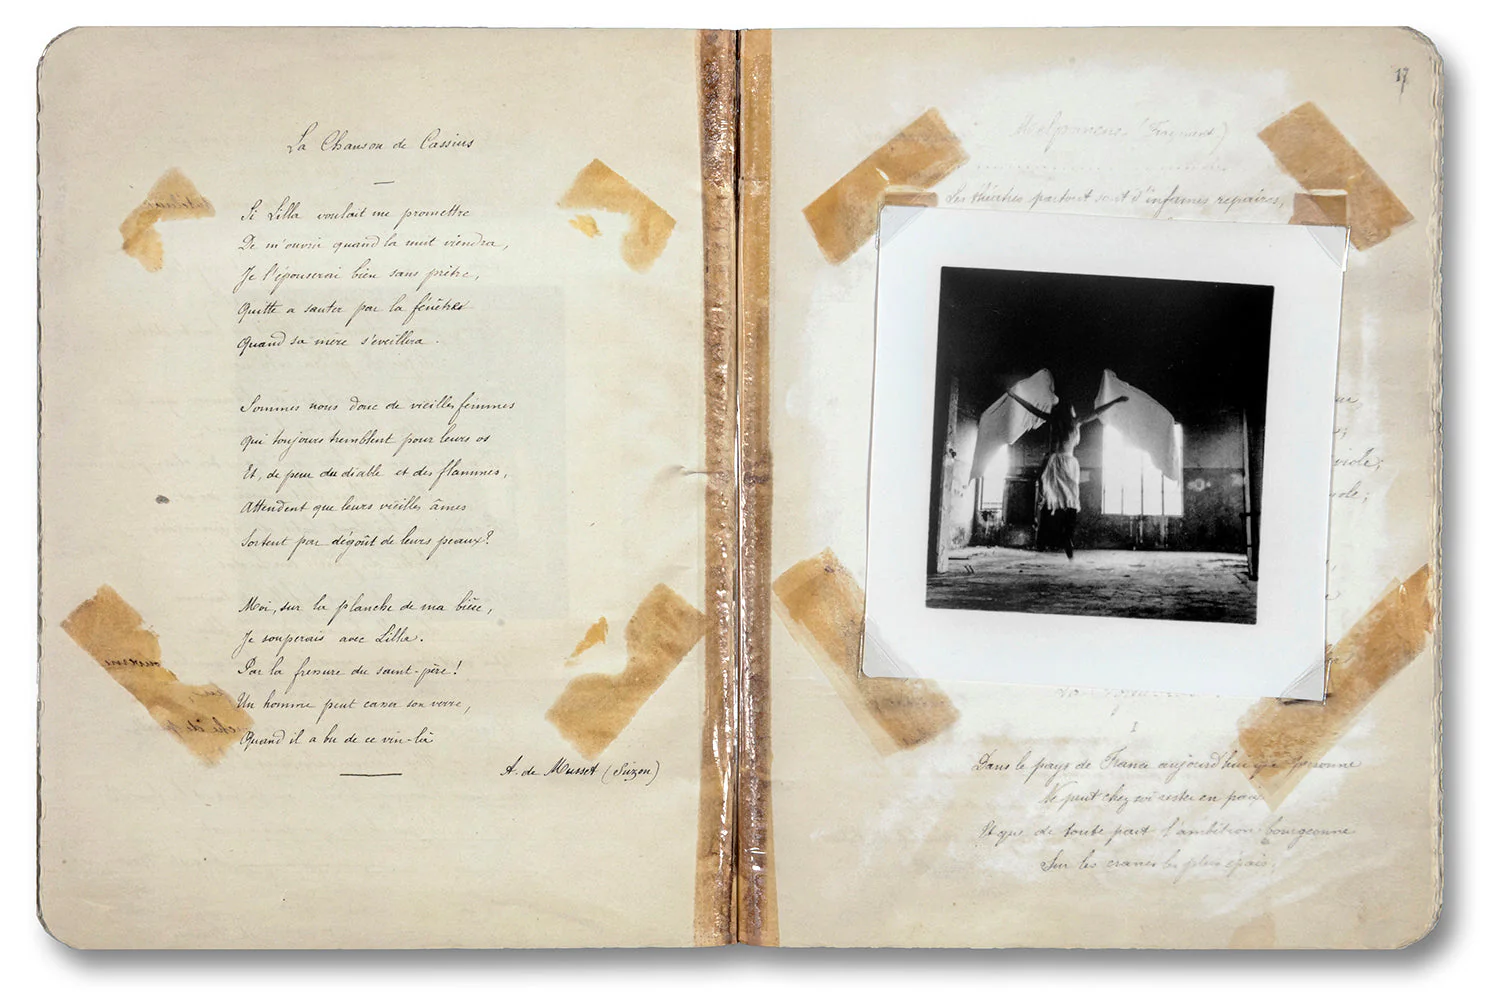 La Chanson de Cassius
Si Lilla voulait me promettre
De m'ouvrir quand la nuit viendra,
Je l'épouserai bien sans prêtre,
Quitte a sauter par la fenêtre
Quand sa mère s'éveillera.
Sommes nous donc de vieilles femmes
qui toujours tremblent pour leurs os
Et, de peur du diable et des flammes,
Attendent que leurs vieilles âmes
Sortent par dégoût de leurs peaux?
Moi, sur la planche de ma bière,
Je souperais avec Lilla.
Par la fressure du saint-père!
Un homme peut casser son verre,
Quand il a bu de ce vin-là
A. de Musset (Suzon)
17
Melpomène
Les théâtres partout sont d'infames repaires,
viole;
I
Dans le pays de France aujourd'hui que personne
Ne peut chez soi rester en paix
Et que de toute part l'ambition bourgeonne
Sur les cranes les plus épais,